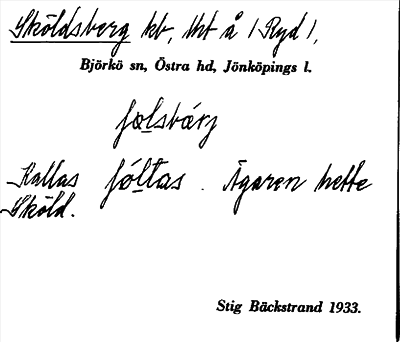 Sköldsberg kb, tht å /Ryd/,
Björkö sn, Östra hd, Jönköpings l.
Kallas . Ägaren hette
Sköld.
Stig Bäckstrand 1933.